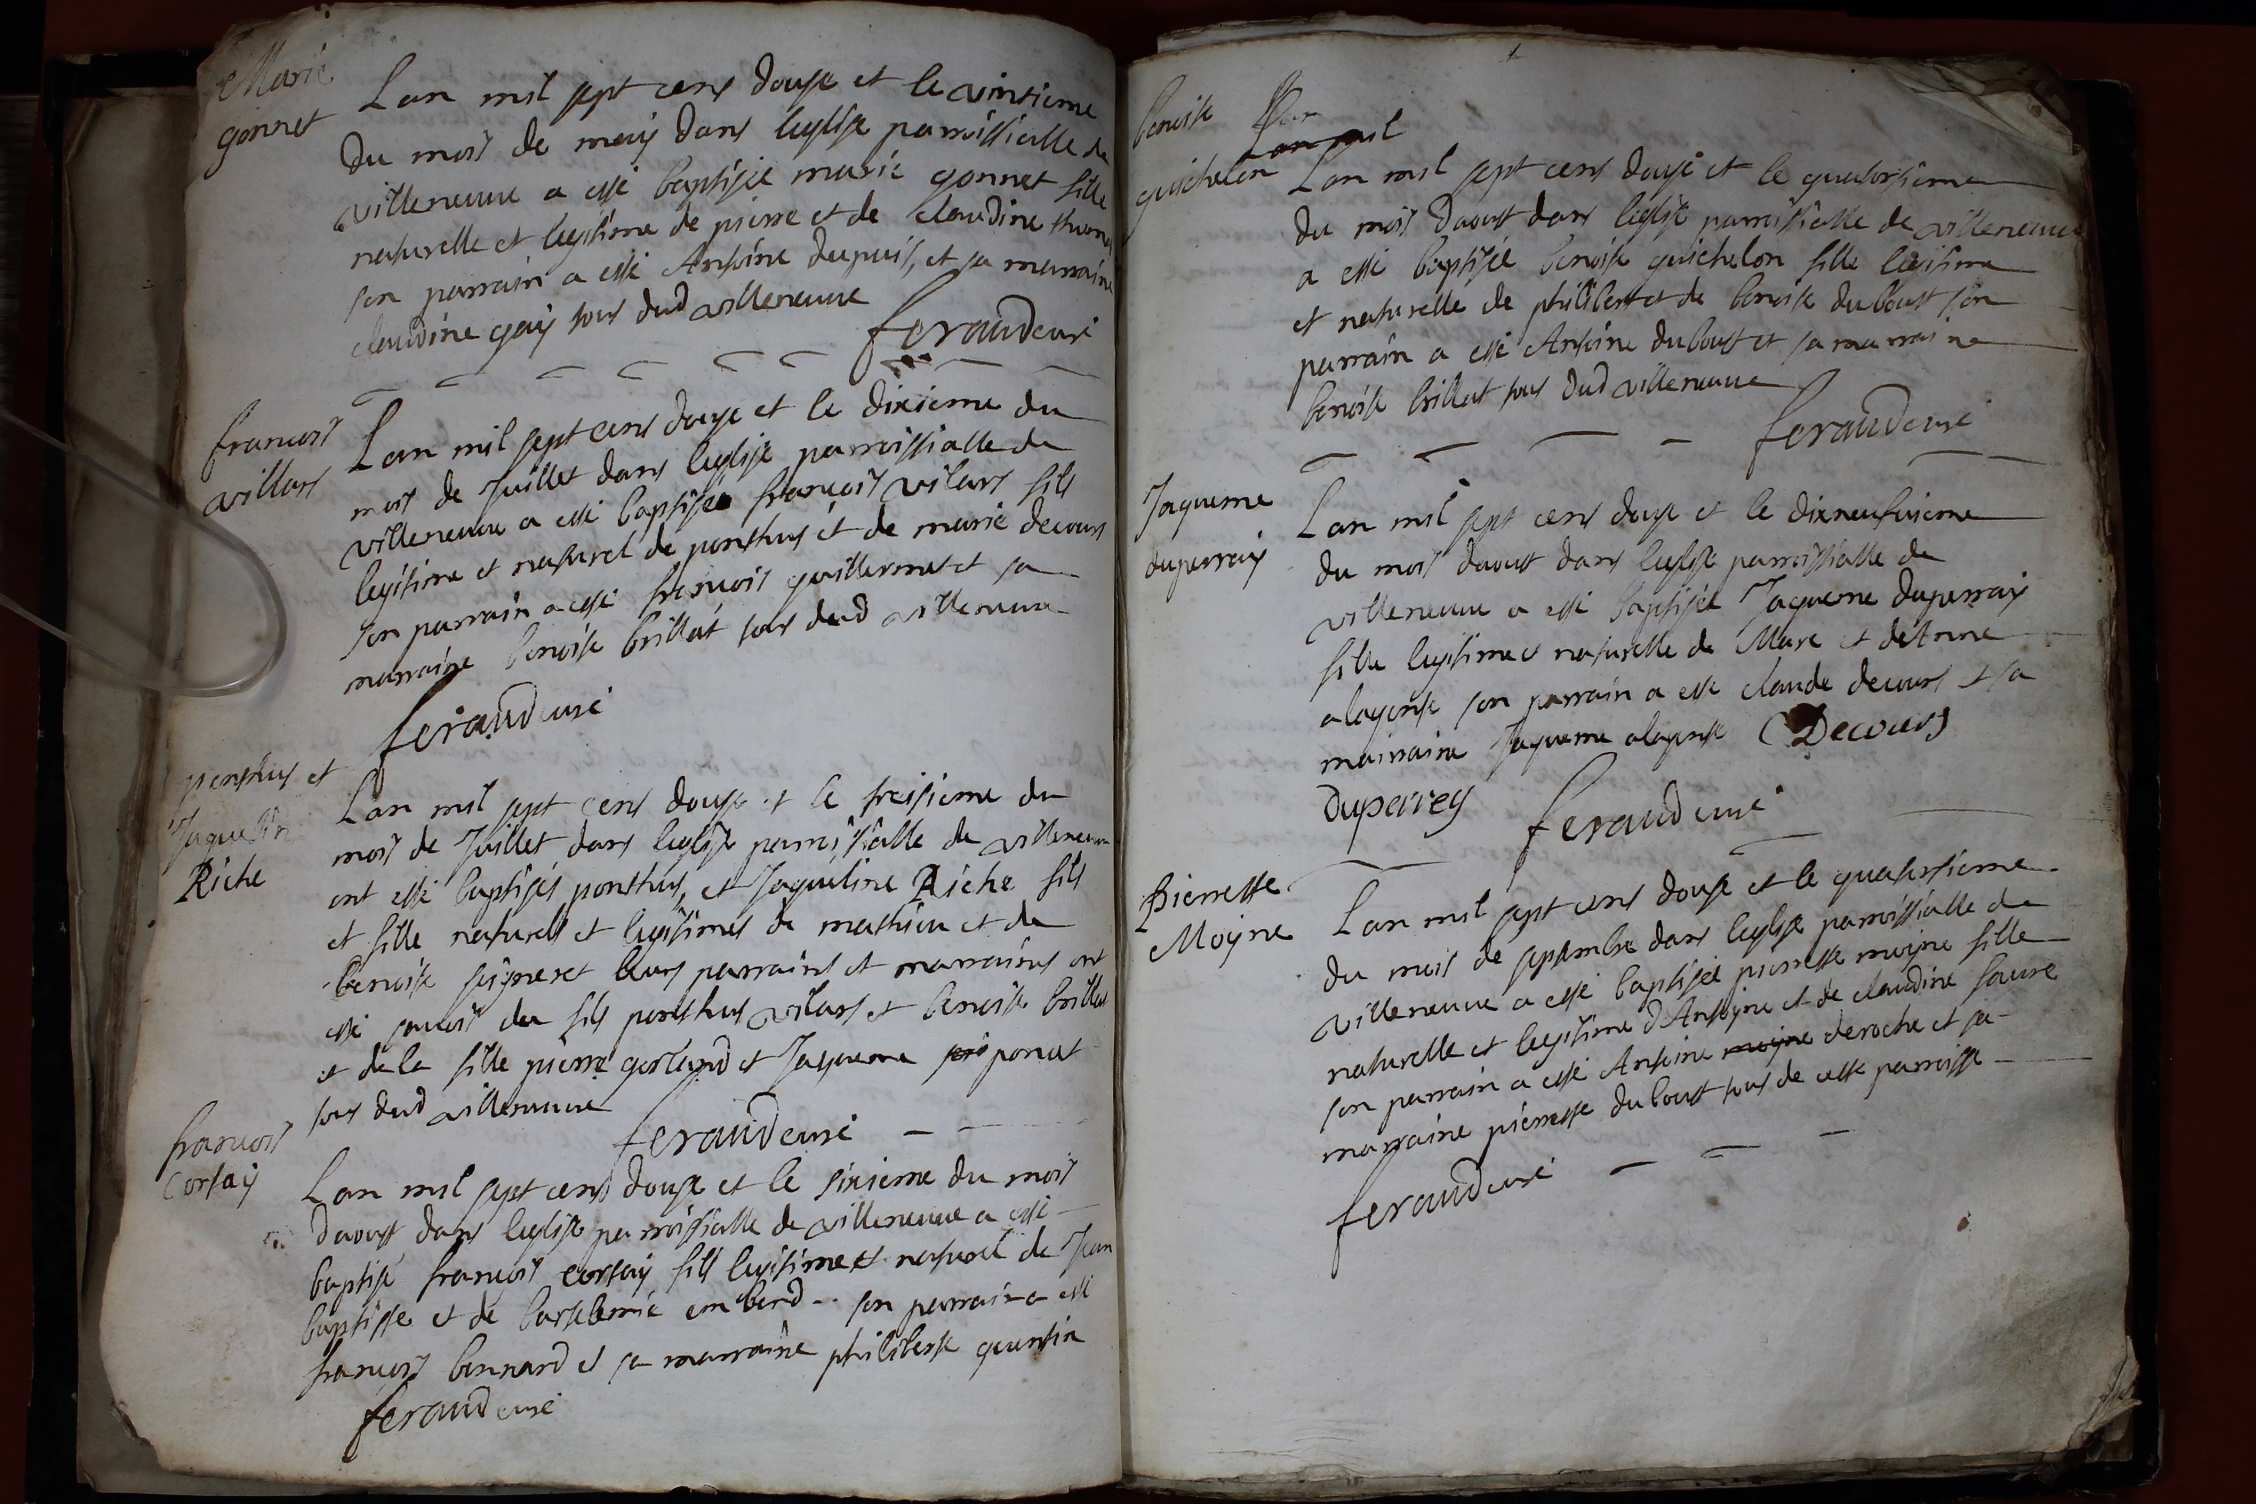 Marie
gonnet
Lan mil sept cens douze et le vintieme
du mois de may dans leglise parroissialle de
villeneuve a esté baptisée marie gonnet fille
naturelle et legitime de pierre et de claudine
son parrain a esté Antoine dupuis, et sa marraine
claudine gay tous dud villeneuve
feraud curé
francois
villars
Lan mil sept cens douze et le dixieme du
mois de Juillet dans leglise parroissialle de
villeneuve a esté baptisé francois vilars fils
legitime et naturel de ponthus et de marie decours
son parrain a esté francois guillermet et sa
marraine benoite brillat tous dud villeneuve
feraud curé
ponthus et
Jaquelin
Riche
Lan mil sept cens douze et le treisieme du
mois de Juillet dans leglise parroissialle de villeneuve
ont esté baptisés ponthus, et Jaqueline Riche fils
et fille naturels et legitimes de mathieu et de
benoite seigneret leurs parrains et marraines ont
esté scavoir du fils ponthus vilars et benoite brillat
et de la fille pierre gerland et Jaqueme poncet
tous dud villeneuve
feraud curé
francois
Cortay
Lan mil sept cens douze et le sixieme du mois
daoust dans leglise parroissialle de villeneuve a esté
baptisé francois cortay fils legitime et naturel de Jean
baptiste et de bartelemie embard son parrain a esté
francois bernard et sa marraine philiberte quantin
feraud curé
benoite
guichelon
Lan mil
Lan mil sept cens douze et le quatorsieme
du mois daoust dans leglise parroissialle de villeneuve
a esté baptisée benoite guichelon fille legitime
et naturelle de philibert et de benoite duboust son
parrain a esté Antoine duboust et sa marraine
benoite brillat tous dud villeneuve
feraud curé
Jaqueme
duperray
Lan mil sept cens douze et le dixneufvieme
du mois daoust dans leglise parroissialle de
villeneuve a esté baptisée Jaqueme duperray
fille legitime et naturelle de Marc et de Anne
alayonte son parrain a esté claude decours et sa
mairraine Jaqueme alayonte Decours
Duperrey feraud curé
Pierrette
Moyne
Lan mil sept cens douze et le quatorsieme
du mois de septembre dans leglise parroissialle de
villeneuve a esté baptisée pierrette moyne fille
naturelle et legitime dAntoyne et de claudine faure
son parrain a esté Antoine moyne deroche et sa
marraine pierrette duboust tous de cette parroisse
feraud curé